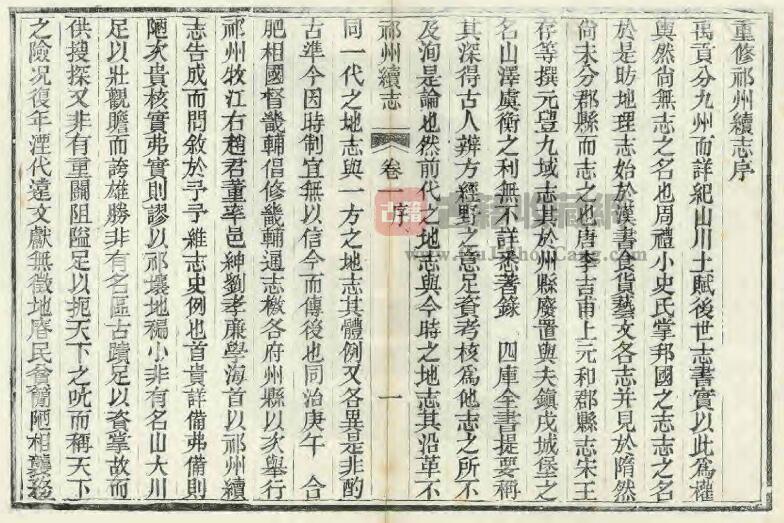 重修祁州續志序
禹貢分九州而詳紀山川土賦後世志書實以此為權
輿然尚無志之名也周禮小史氏掌邦國之志志之名
於是昉地理志始於漢書食貨藝文各志並見於隋然
尚未分郡縣而志之也唐李吉甫上元和郡縣志宋王
存等撰元豐九域志其於州縣廢置與夫鎮戍城堡之
名山澤虞衡之利無不詳悉著錄 四庫全書提要稱
其深得古人辨方經野之意足資考核為他志之所不
及洵是論也然前代之地志與今時之地志其沿革不
祁州續志 卷一 序 一
同一代之地志與一方之地志其體例又各異是非酌
古準今因時制宜無以信今而傳後也同治庚午 合
肥相國督畿輔倡修畿輔通志檄各府州縣以次舉行
祁州牧江右趙君董率邑紳劉孝廉學海首以祁州續
志告成而問敘於予予維志史例也首貴詳備弗備則
陋次貴核實弗實則謬以祁壤地褊小非有名山大川
足以壯觀瞻而誇雄勝非有名區古蹟足以資掌故而
供搜探又非有重關阻隘足以扼天下之吭而稱天下
之險況復年湮代遠文獻無徵地瘠民貧簡陋相襲務
古籍收藏网
www.GuJiShouCang.com